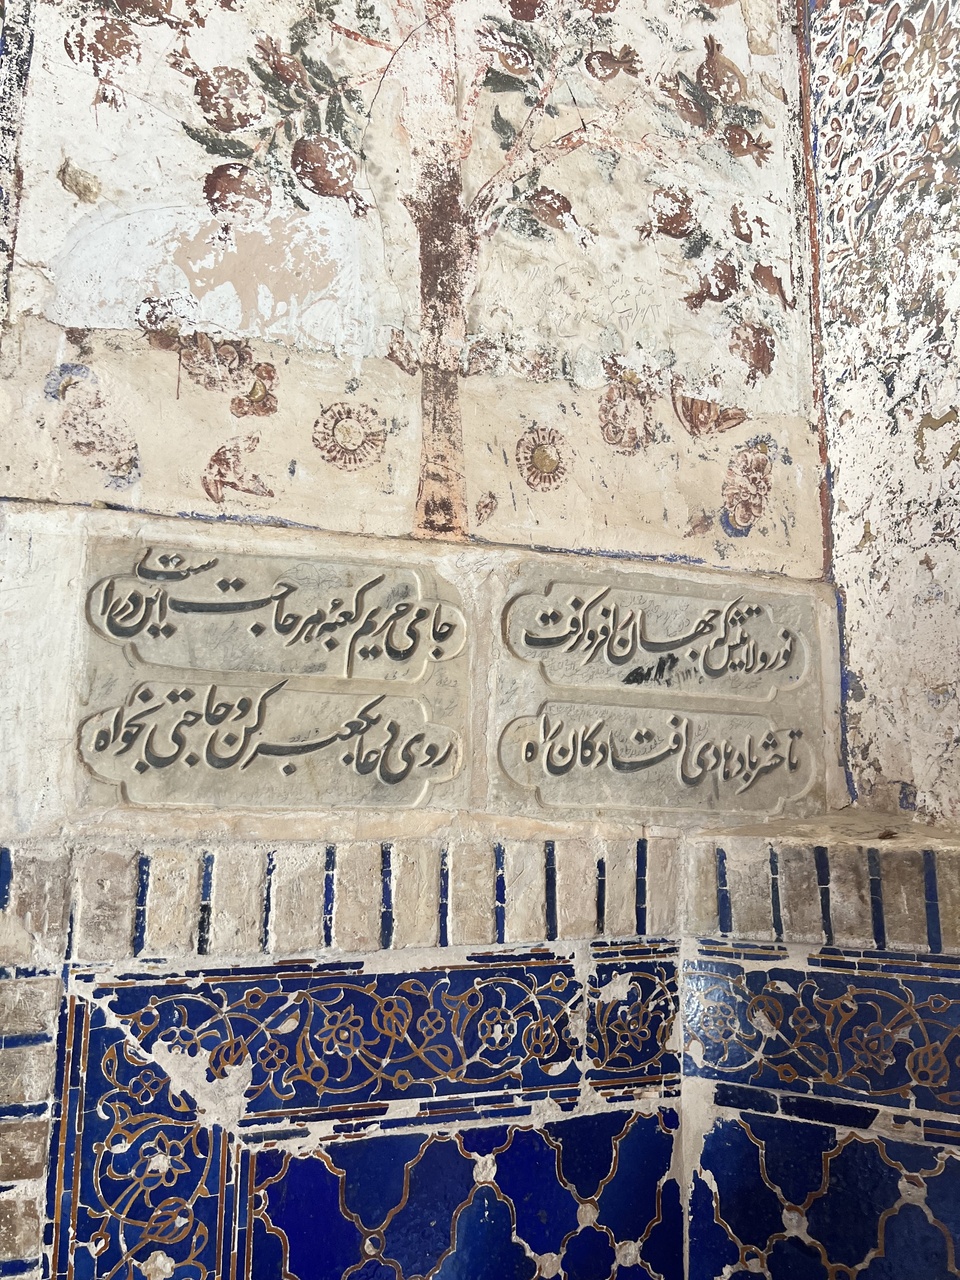 نور ولایتش که جهان را فرو گرفت
تا حشر باد هادی افتادگان راه
جامی حریم کعبهٔ هر حاجت این در است
روی دعا بکعبه کن و حاجتی بخواه